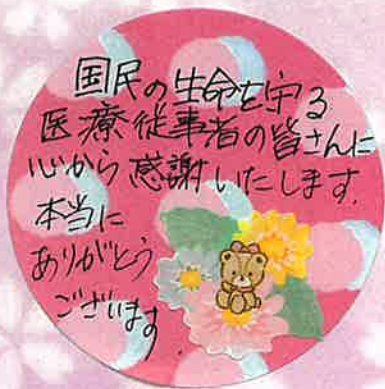 国民の生命を守る
医療従事者の皆さんに
心から感謝いたします。
本当に
ありがとう
ございます